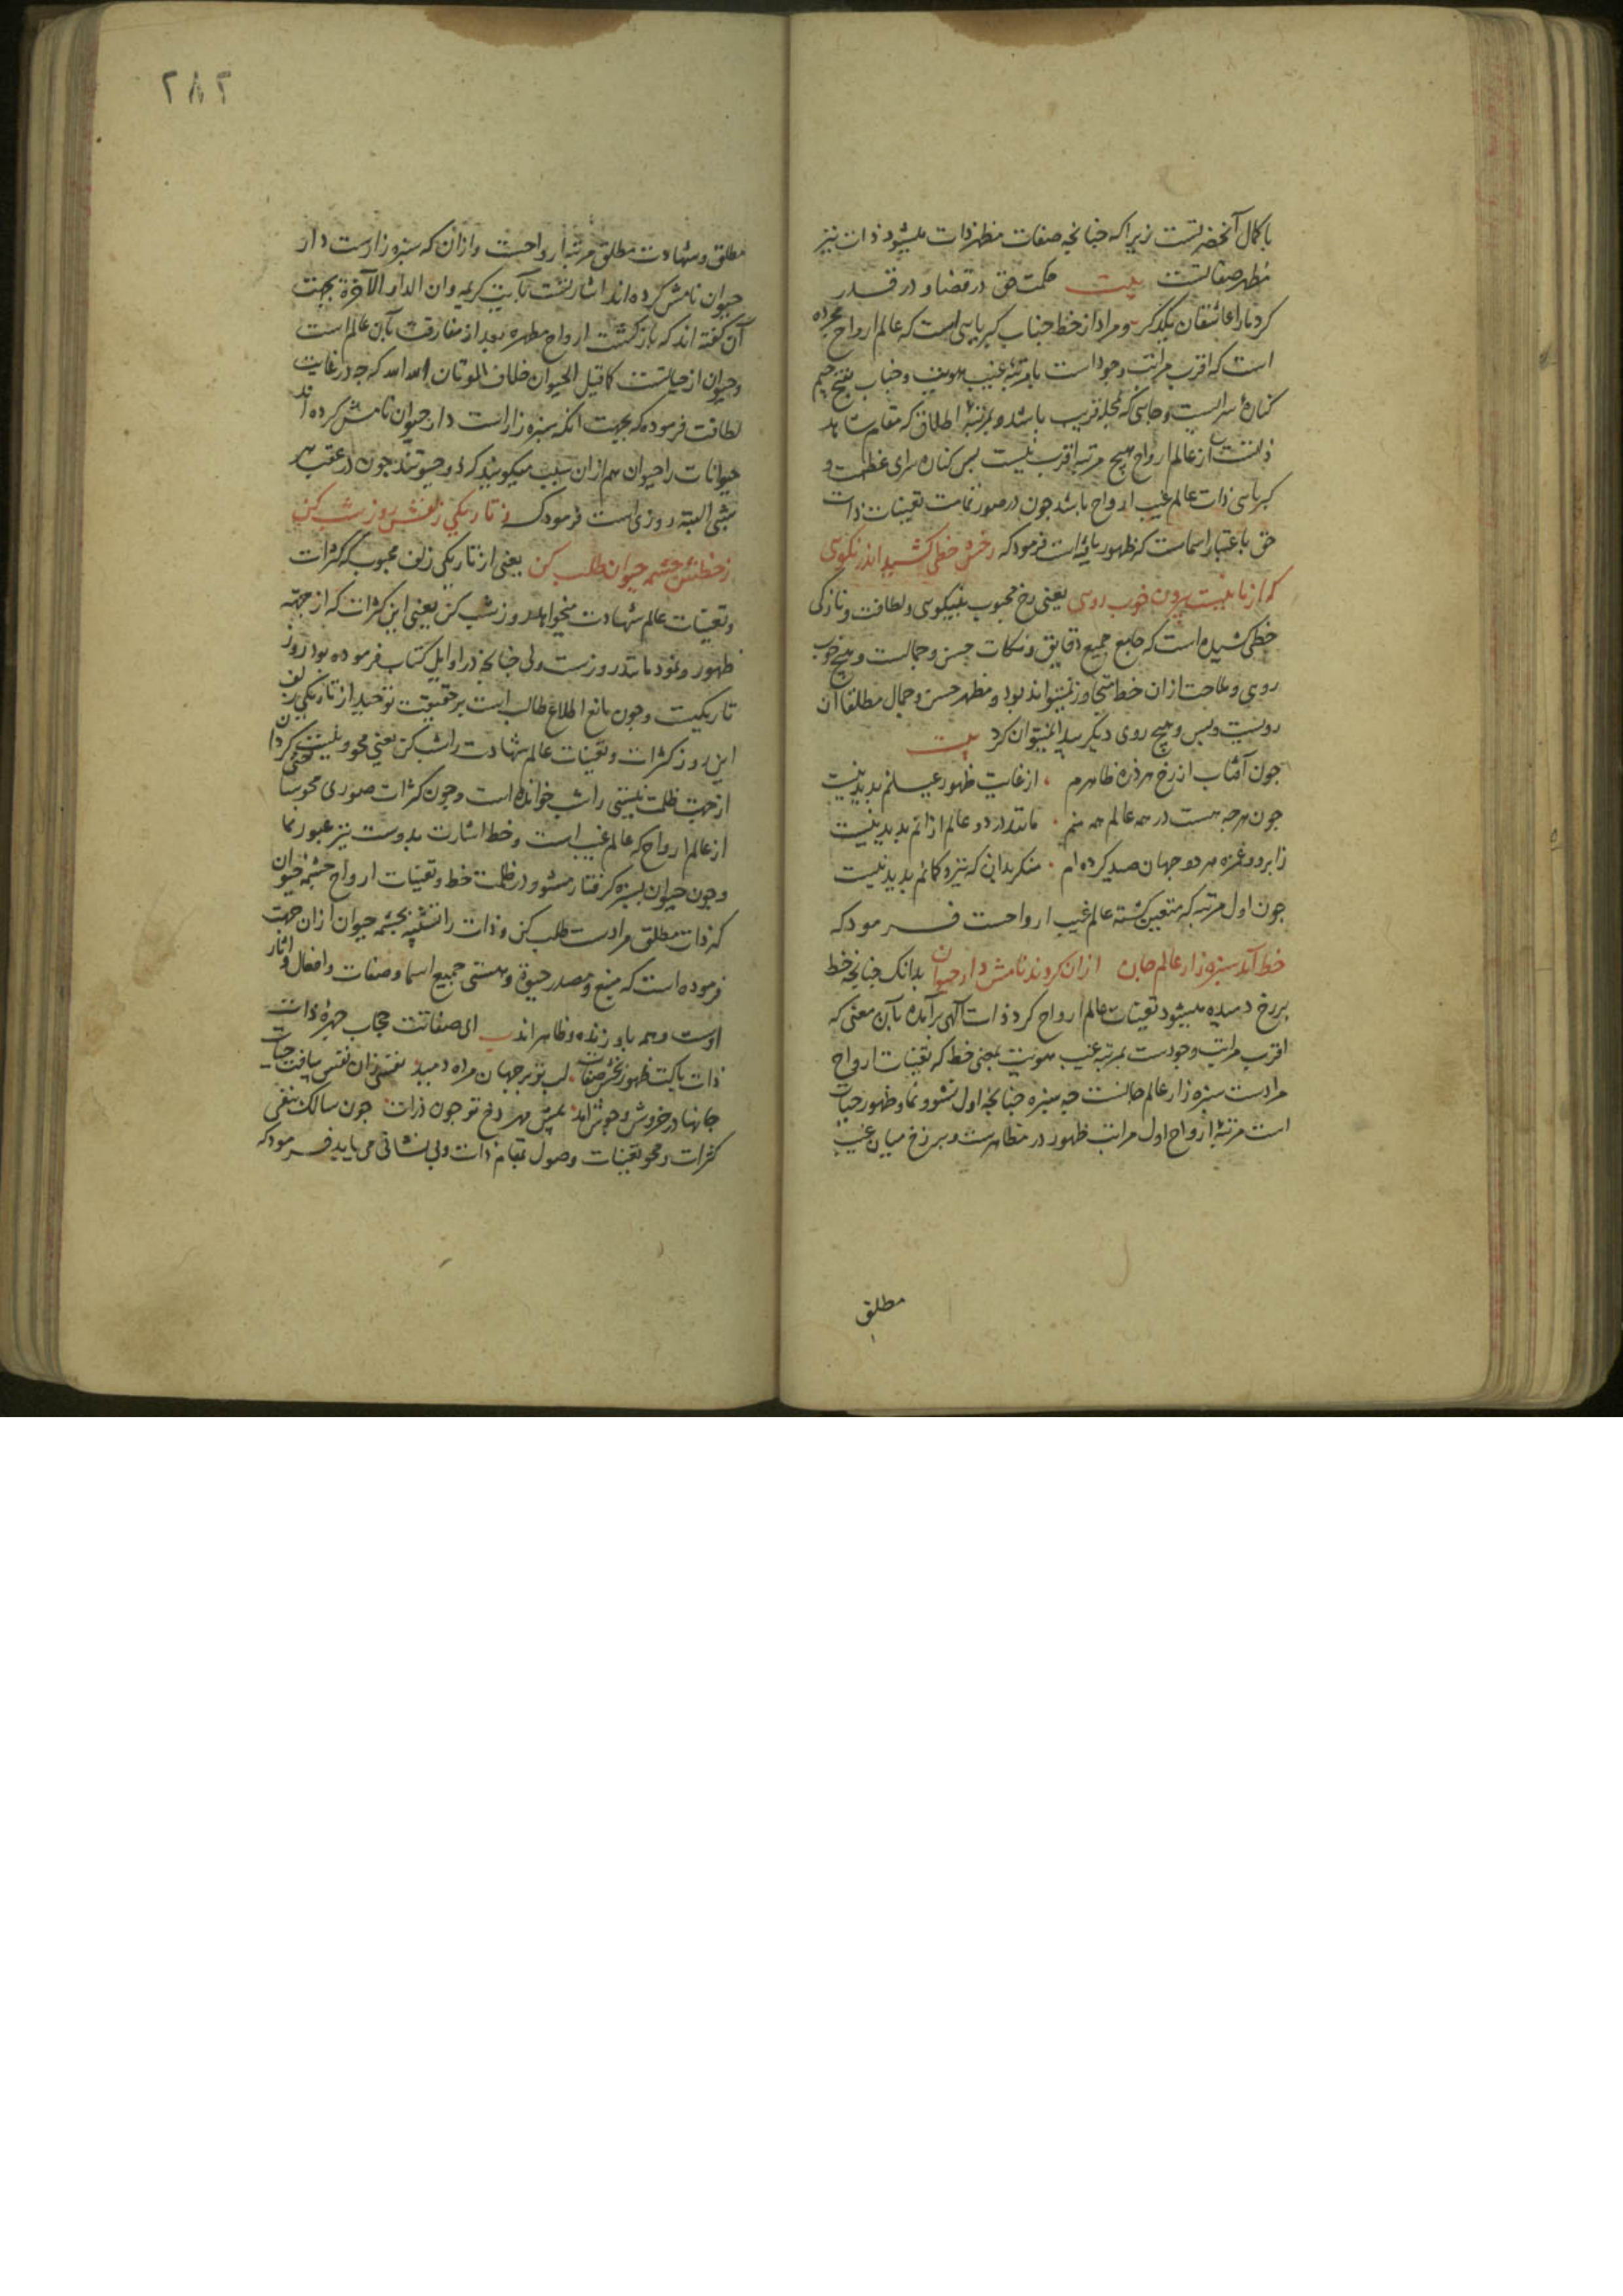 با کمال آنحضرتست زیرا که چنانچه صفات مظهر ذات میشود ذات نیز
مظهر صفاتست بیت حکمت حق در قضا و در قدر
کرد ما را عاشقان یکدگر ومراد از خط جناب کبریایی است که عالم ارواح مجرده
است که اقرب مراتب وجود است با مرتبه غیب هویت وجناب بفتح جیم
کنارهٔ سرایست وجایی که محله قریب باشد وبمرتبهٔ اطلاق که مقام شاهد
ذاتست از عالم ارواح هیچ مرتبه اقرب نیست پس کناره سرای عظمت و
کبریایی ذات عالم غیب ارواح باشد چون در صور تمامت تعینات ذات
حق باعتبار اسماست که ظهور یافته است فرمود که رخش خطی کشید اندر نکویی
که از ما نیست بیرون خوب رویی یعنی رخ محبوب بنیکویی ولطافت ونازکی
خطی کشیده است که جامع جمیع دقایق ونکات حسن وجمالست وهیچ خوب
رویی وملاحت ازان خط تجاوز نمیتواند بود ومظهر حسن وجمال مطلقا آن
رویست وبس وهیچ روی دیگر پیدا نمیتوان کرد بیت
چون آفتاب از رخ هر ذره ظاهرم از غایت ظهور عیانم پدید نیست
چون هر چه هست در همه عالم همه منم مانند در دو عالم ازانم پدید نیست
ز ابرو وغمزه هر دو جهان صید کرده ام منکر بدان که تیر و کمانم پدید نیست
چون اول مرتبه که متعین کشته عالم غیب ارواحست فرمود که
خط آمد سبزه زار عالم جان ازان کردند نامش دار حیوان بدانک چنانچه خط
بر رخ دمیده میشود تعینات عالم ارواح کرد ذات الهی برآمده بآن معنی که
اقرب مراتب وجودست بمرتبه غیب هویت یعنی خط که تعینات ارواح
مرادست سبزه زار عالم جانست چه سبزه چنانچه اول نشو ونما وظهور حیات
است مرتبهٔ ارواح اول مراتب ظهور در مظاهرست وبرزخ میان غیب
مطلق
۲۸۲
مطلق وشهادت مطلق مرتبه ارواحست وازان که سبزه زارست دار
حیوان نامش کرده اند اشارتست بآیت کریمه وان الدار الآخرة بجهت
آن گفته اند که بازکشت ارواح مطهره بعد از مفارقت بآن عالم است
وحیوان از حیاتست کما قیل الحیوان خلاف الموتان الله الله که چه در غایت
لطافت فرموده که بجهت آنکه سبزه زار است دار حیوان نامش کرده اند
حیوانات را حیوان هم ازان سبب میکویند که چون در عقب هر
شبی البته روزی است فرمود که ز تاریکی زلفش روز شب کن
ز خطش چشمه حیوان طلب کن یعنی از تاریکی زلف محبوب که کثرات
وتعینات عالم شهادت میخواهد روز شب کن یعنی این کثرات که از جهت
ظهور ونمود مانند روزست ولی چنانچه در اوایل کتاب فرموده بود روز
تاریکیست وچون مانع اطلاع طالب است بر حقیقت توحید از تاریکی زلف
این روز کثرات وتعینات عالم شهادت را شب کن یعنی محو ونیست کردان
از جهت ظلمت نیستی را شب خوانده است وچون کثرات صوری محو ساختی
از عالم ارواح که عالم غیب است وخط اشارت بدوست نیز عبور نما
وچون حیوان بسبزه کرفتار مشو ودر ظلمت خط وتعینات ارواح چشمهٔ حیوان
که ذات مطلق مرادست طلب کن وذات را تشبیه بچشمه حیوان ازان جهت
فرموده است که منبع ومصدر حیوة وهستی جمیع اسما وصفات وافعال وآثار
اوست وهمه باو زنده وظاهراند بیت ای صفاتت حجاب چهرهٔ ذات
ذات پاکت ظهور بخش صفات لب تو بر جهان مرده دمید نفسی زان نفس بیافت حیات
جانها در خروش وجوش اند پیش مهر رخ تو چون ذرات چون سالک بنفی
کثرات ومحو تعینات وصول بمقام ذات وبی نشانی می یابد فرمود که